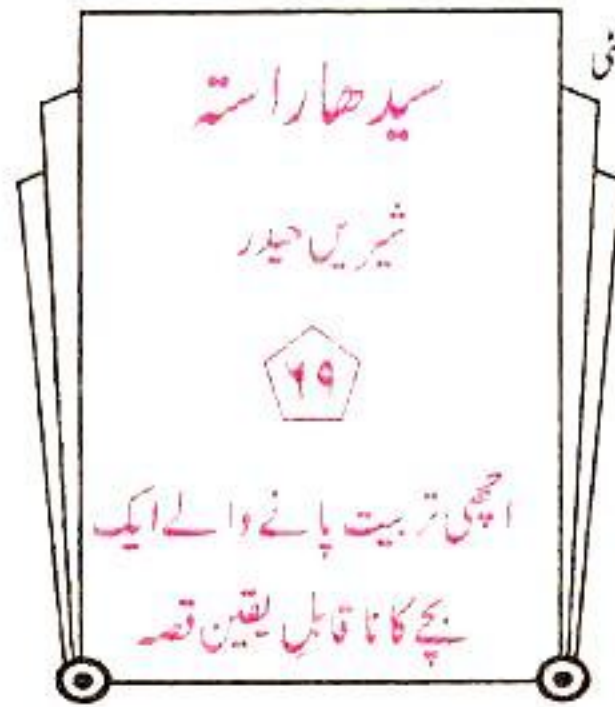 سیدھا راستہ
شیریں حیدر
۶۹
اچھی تربیت پانے والے ایک
بچے کا ناقابلِ یقین قصہ